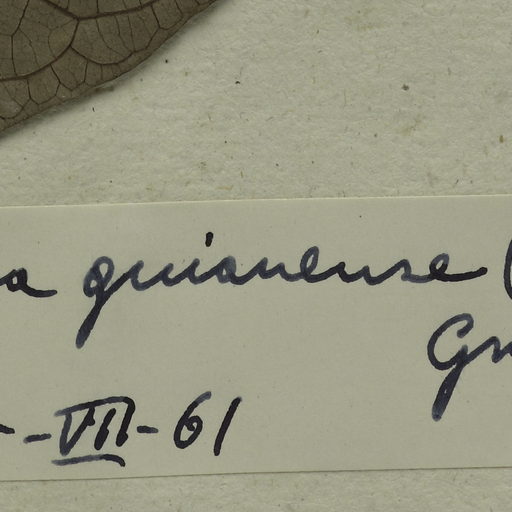 a guianense (
Gr
-VII-61